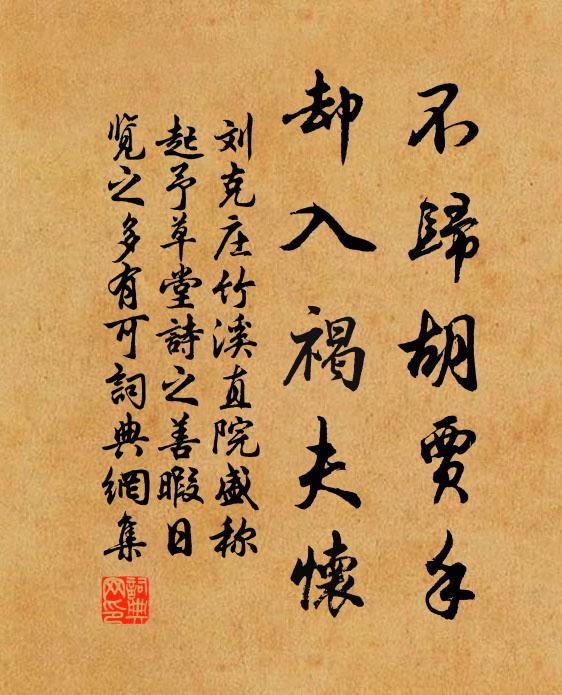 不歸胡賈手
却入褐夫懷
刘克庄竹溪直院盛称
起予草堂詩之善暇日
覽之多有可詞典網集
詞典网印